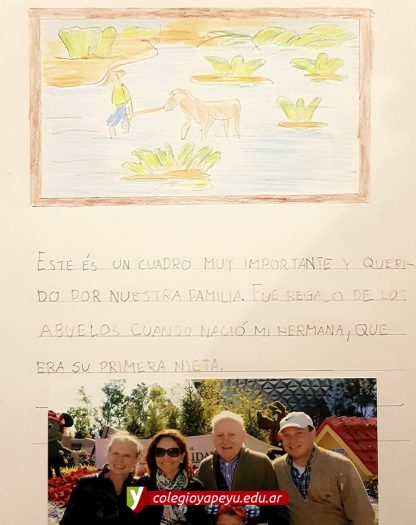 ESTE ÉS UN CUADRO MUY IMPORTANTE Y QUERI-
DO POR NUESTRA FAMILIA. FUE REGALO DE LO-
ABUELOS CUANDO NACIÓ MI HERMANA, QUE
ERA SU PRIMERA NIETA.
colegioyapeyu.edu.ar